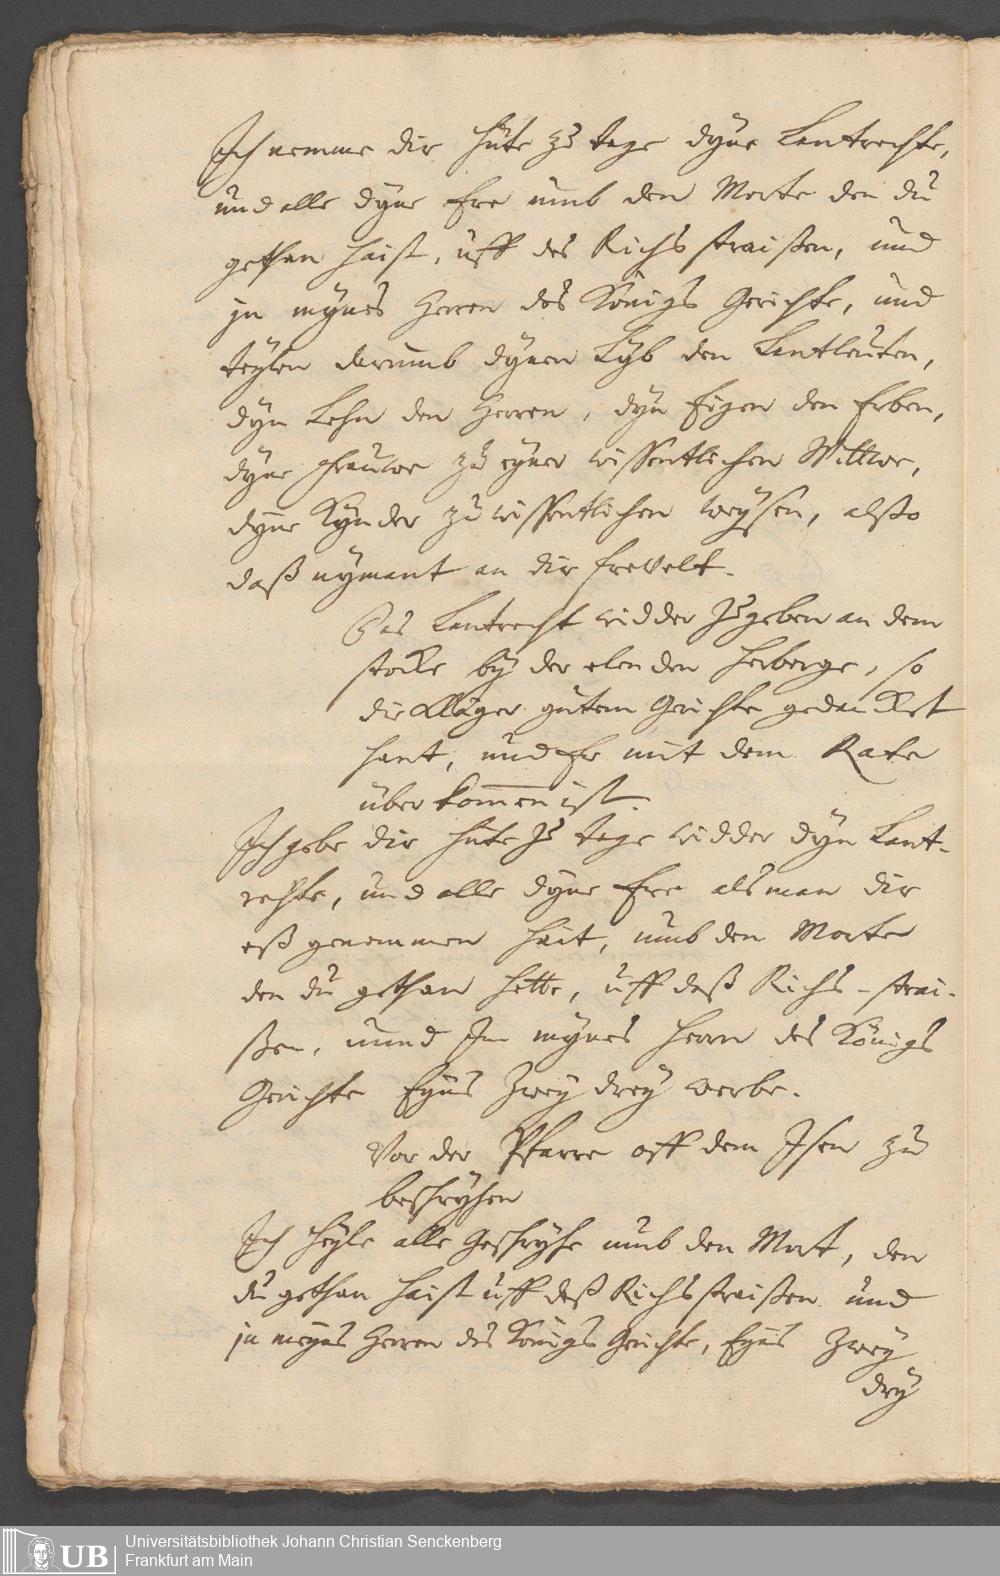 Ich nemme dir hüte zu tage dyne Lantrechte,
und alle dyne Ere umb den Morte den du
gethan haist, uff des Richs straissen, und
jn mynes Herren des Königs Gerichte, und
teylen darumb dynen Lyb den Lantleuten,
dyn Lehn den Herren, dyn Eigen den Erben,
dyne frauwe zu eyner wissentlichen Wittwe,
dyne Kynder zu wissentlichen weysen, alsso
daß nymant an dir frevelt.
Das Lantrecht widder zu geben an dem
stocke by der elenden herberge, so
die Kläger gutem Gerichte gedancket
hant, und Er mit dem Rate
überkommen ist.
Ich gebe dir hüte zu tage widder dyn Lant-
rechte, und alle dyne Ere als man dir
eß genommen hait, umb den Morte
den du gethan hette, uff deß Richs-strai-
ßen, unnd In mynes Herrn des Königs
Gerichte Eyns Zwey drey werbe.
Vor der Pfarre off dem Isen zu
beschryhen
Ich heyle alle Geschryhe umb den Mort, den
du gethan haist uff deß Richs straissen und
jn meyns Herren des Königs Gerichte, Eyns Zwey
drey
Universitätsbibliothek Johann Christian Senckenberg
Frankfurt am Main
UB